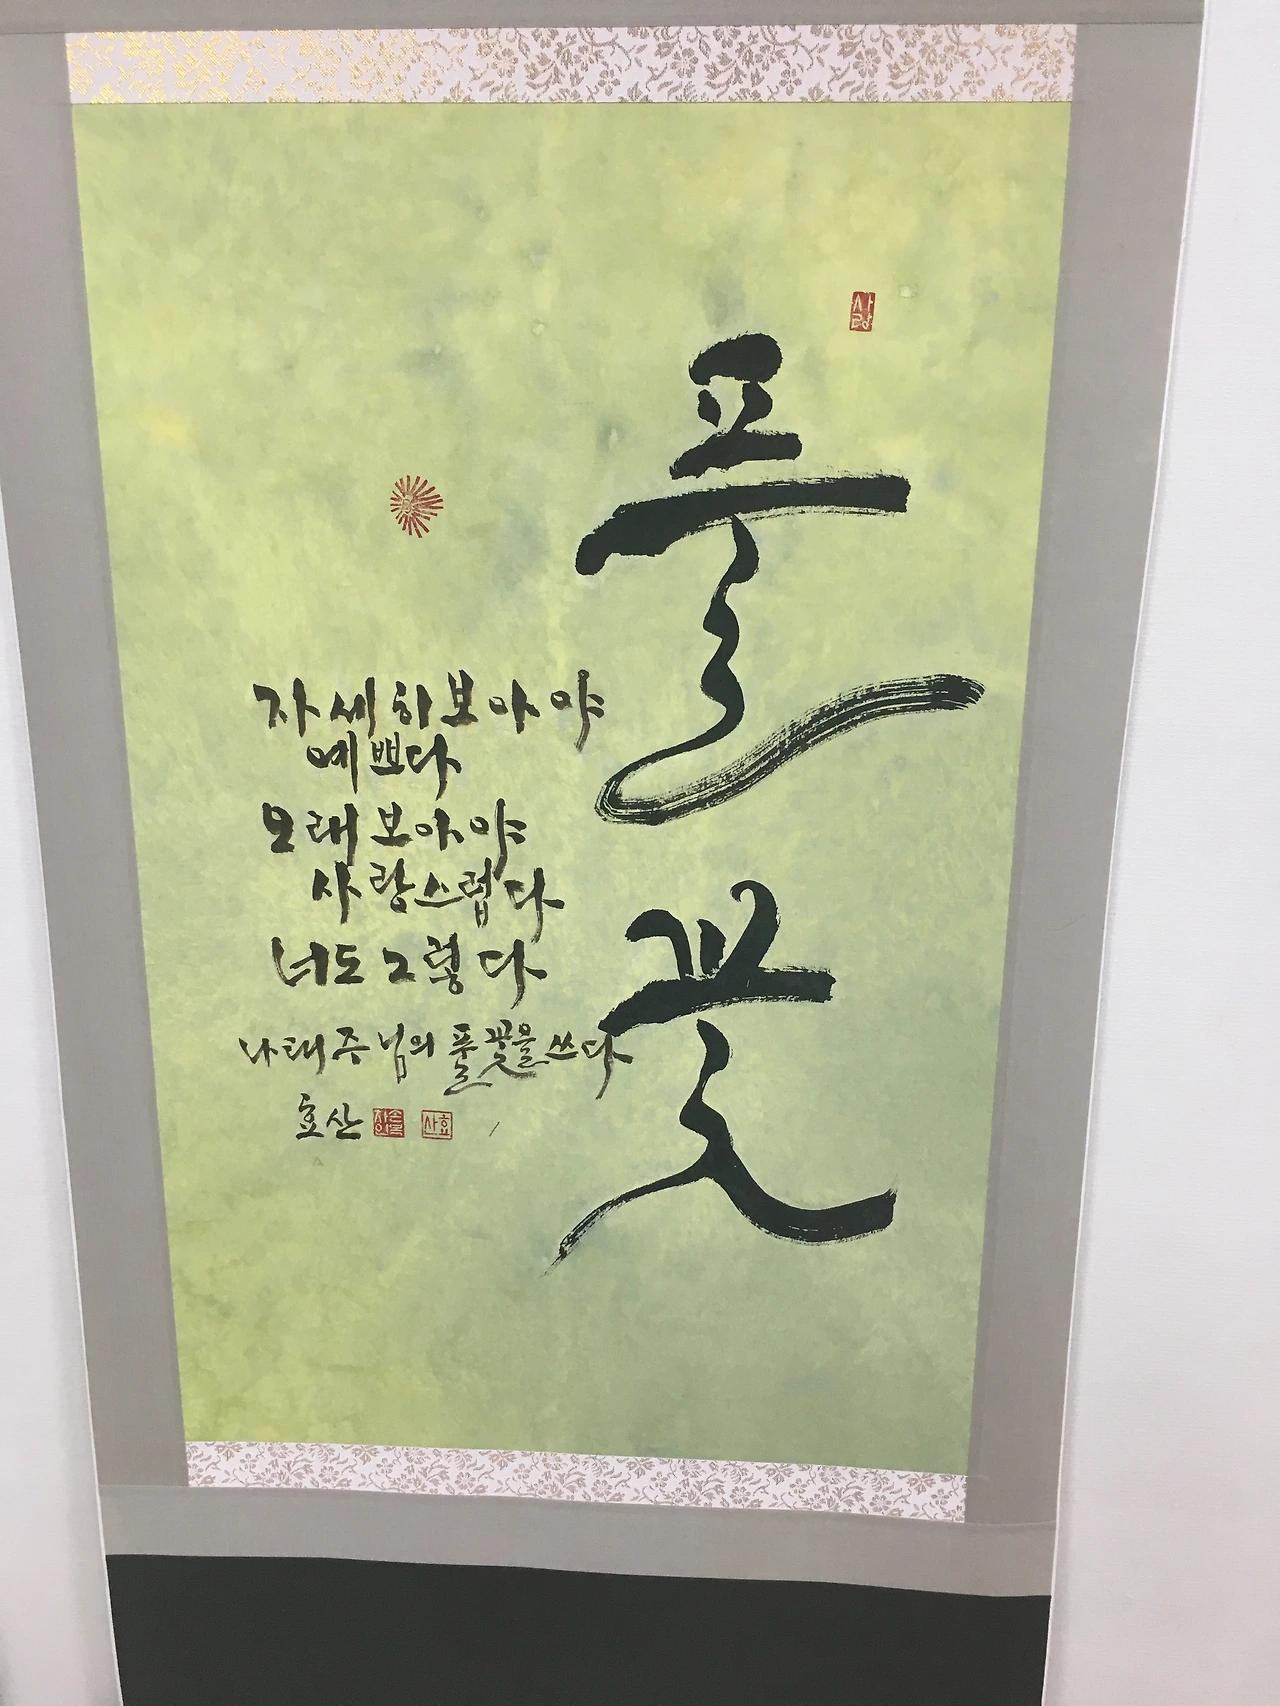 풀꽃
사랑
자세히보아야
예쁘다
오래 보아야
사랑스럽다
너도 그렇다
나태주님의 풀꽃을 쓰다
효산
효산